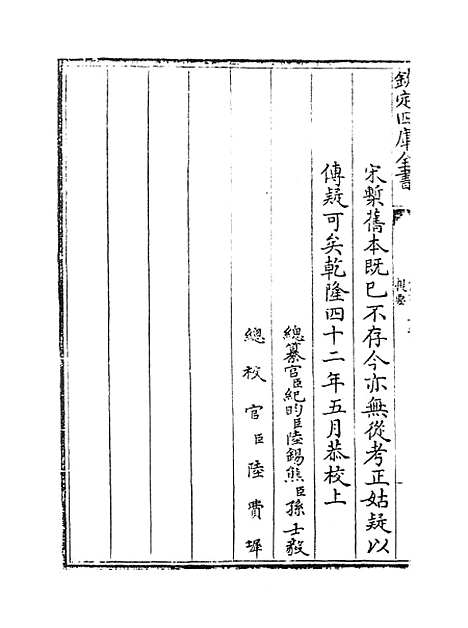 欽定四庫全書
提要
宋槧舊本既已不存今亦無從考正姑疑以
傳疑可矣乾隆四十二年五月恭校上
總纂官臣紀昀臣陸錫熊臣孫士毅
總校官臣陸費墀